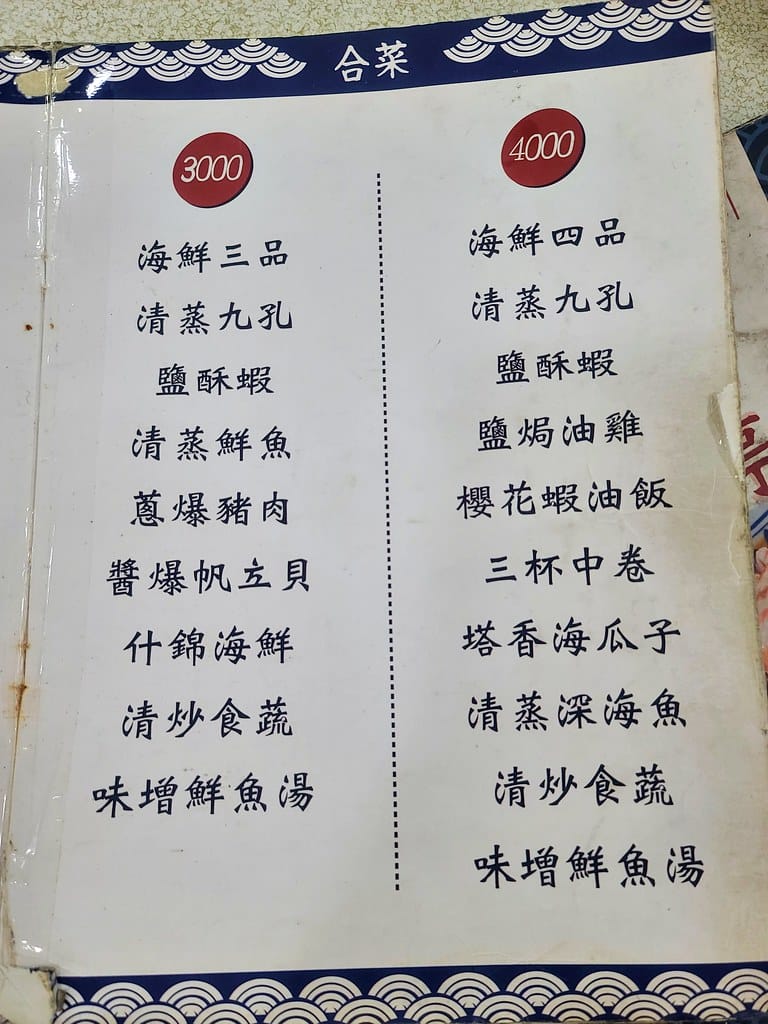 合菜
3000
海鮮三品
清蒸九孔
鹽酥蝦
清蒸鮮魚
蔥爆豬肉
醬爆帆立貝
什錦海鮮
清炒食蔬
味增鮮魚湯
4000
海鮮四品
清蒸九孔
鹽酥蝦
鹽焗油雞
櫻花蝦油飯
三杯中卷
塔香海瓜子
清蒸深海魚
清炒食蔬
味增鮮魚湯